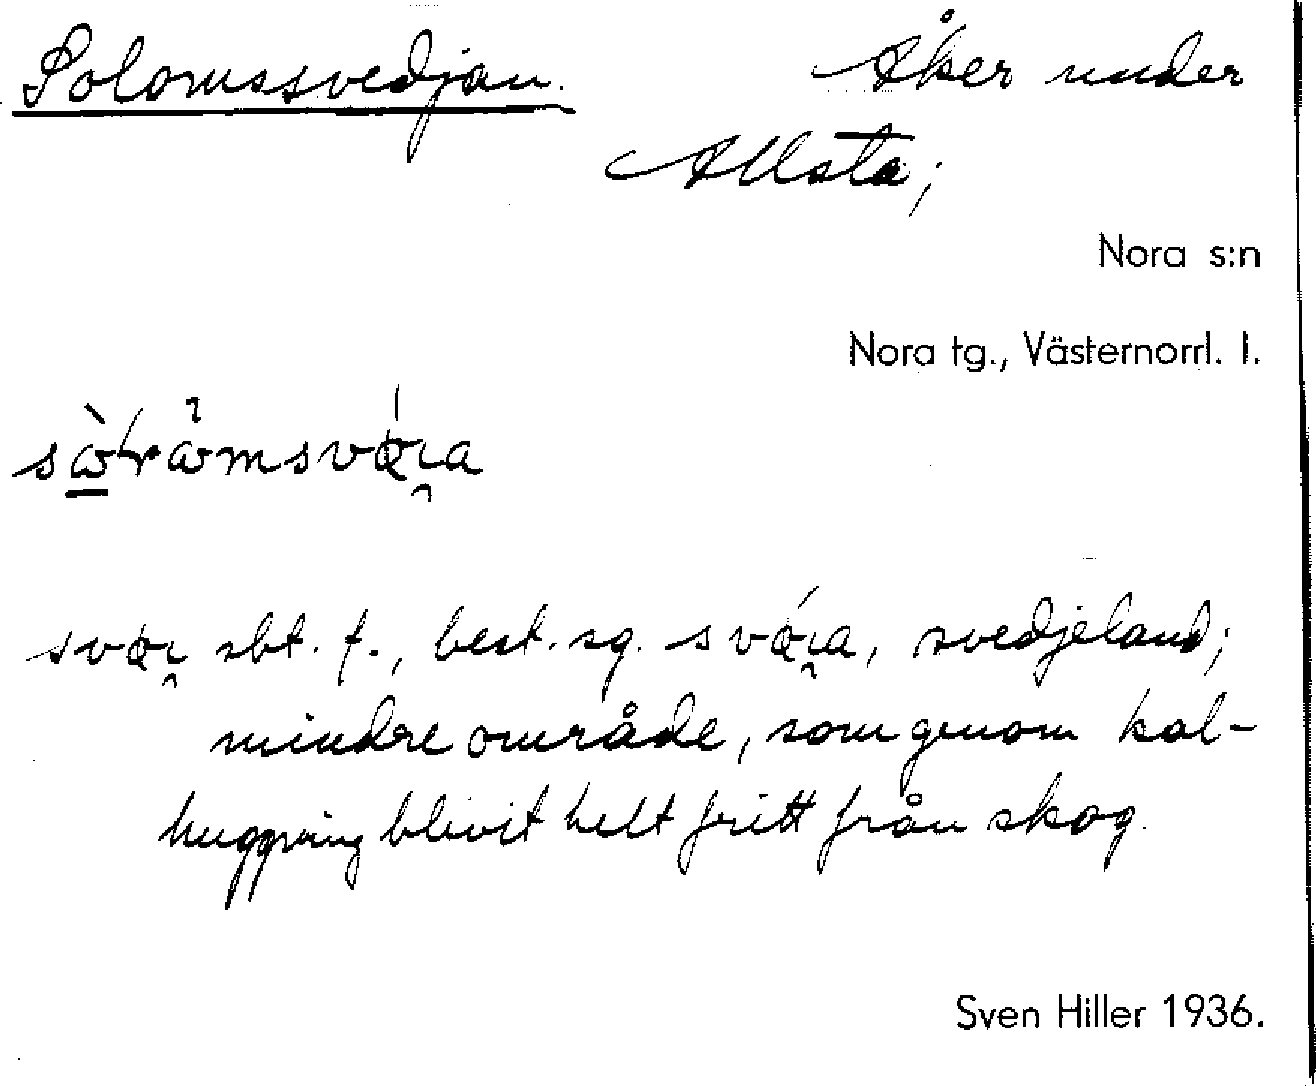 Solomssvedjan. Åker under
Allsta;
Nora s:n
Nora tg., Västernorrl. l.
sbt. f., best. sg. svedjeland;
mindre område, som genom kal-
huggning blivit helt fritt från skog.
Sven Hiller 1936.